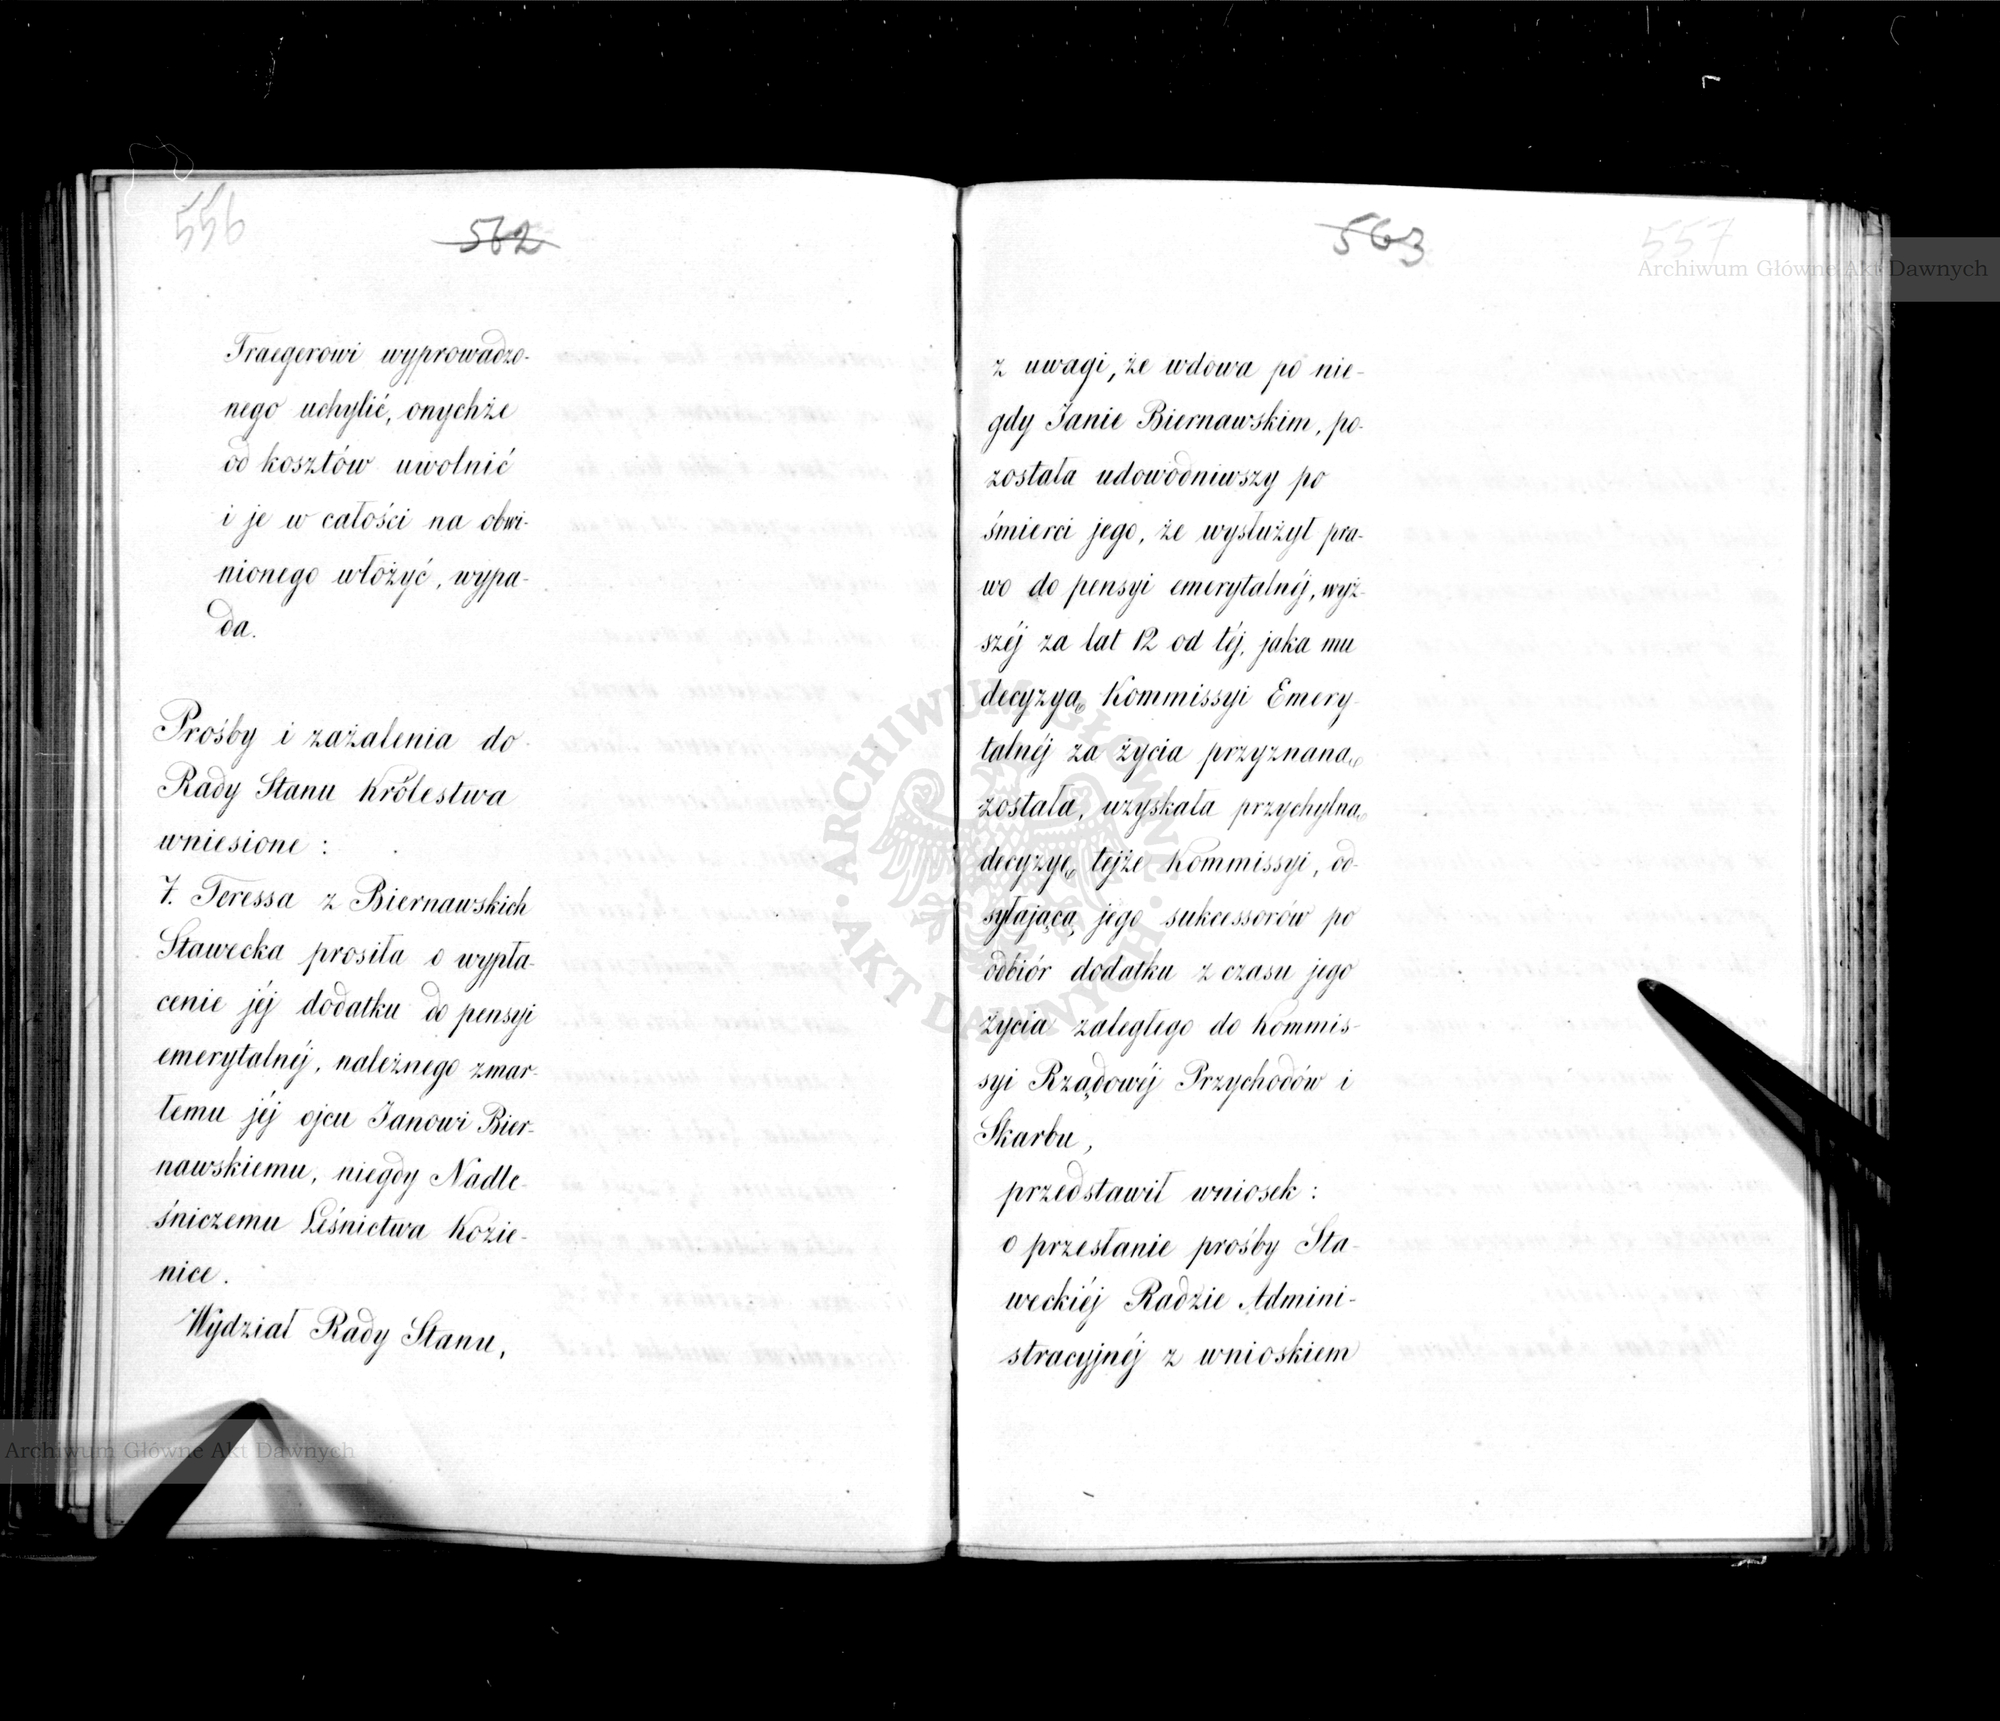 556
562
Traegerowi wyprowadzo-
nego uchylić, onychże
od kosztów uwolnić
i je w całości na obwi-
nionego włożyć, wypa-
da.
Prośby i zażalenia do
Rady Stanu Królestwa
wniesione :
7. Teressa z Biernawskich
Stawecka prosiła o wypła-
cenie jéj dodatku do pensyi
emerytalnéj, należnego zmar-
łemu jéj ojcu Janowi Bier-
nawskiemu, niegdy Nadle-
śniczemu Leśnictwa Kozie-
nice.
Wydział Rady Stanu,
563
557
z uwagi, że wdowa po nie-
gdy Janie Biernawskim, po-
została udowodniwszy po
śmierci jego, że wysłużył pra-
wo do pensyi emerytalnéj, wyż-
széj za lat 12 od téj, jaka mu
decyzyą Kommissyi Emery-
talnéj za życia przyznaną
została, uzyskała przychylną
decyzyę tejże Kommissyi, od-
syłającą jego sukcessorów po
odbiór dodatku z czasu jego
życia zaległego do Kommis-
syi Rządowéj Przychodów i
Skarbu,
przedstawił wniosek :
o przesłanie prośby Sta-
weckiéj Radzie Admini-
stracyjnéj z wnioskiem
Archiwum Główne Akt Dawnych
ARCHIWUM GŁÓWNE · AKT DAWNYCH ·
Archiwum Główne Akt Dawnych